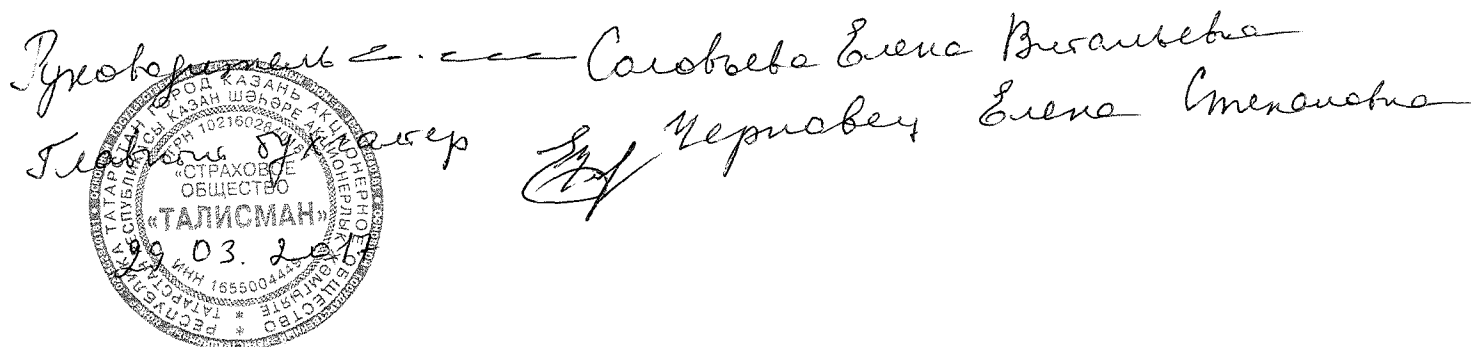 Руководитель Соловьева Елена Витальевна
Главный бухгалтер Чернавец Елена Степановна
29 03. 2017
РЕСПУБЛИКА ТАТАРСТАН ГОРОД КАЗАНЬ АКЦИОНЕРНОЕ ОБЩЕСТВО
ТАТАРСТАН РЕСПУБЛИКАСЫ КАЗАН ШӘҺӘРЕ АКЦИОНЕРЛЫК ҖӘМГЫЯТЕ
ОГРН
«СТРАХОВОЕ
ОБЩЕСТВО
«ТАЛИСМАН»
ИНН 1655004449